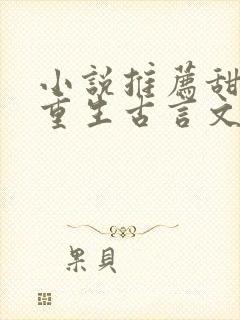 小說推薦甜
重生古言文
果貝